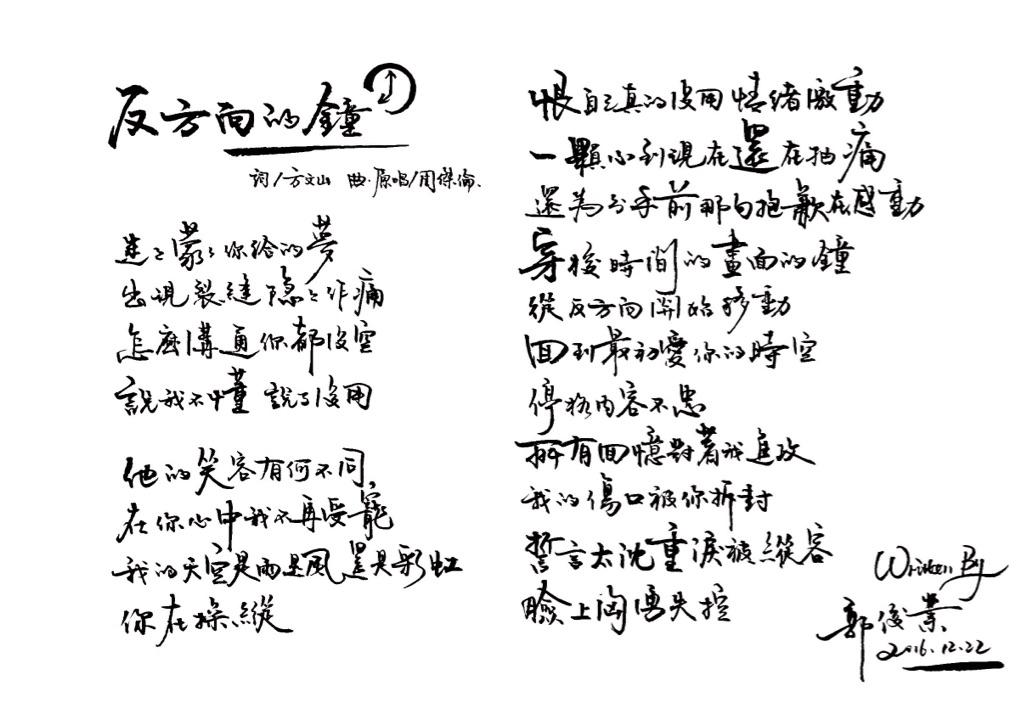 反方向的鐘
詞/方文山 曲.原唱/周傑倫.
迷迷蒙蒙你給的夢
出現裂縫隱隱作痛
怎麼溝通你都沒空
說我不懂 說了沒用
他的笑容有何不同
在你心中我不再受寵
我的天空是雨是風還是彩虹
你在操縱
恨自己真的沒用情緒激動
一顆心到現在還在抽痛
還為分手前那句抱歉在感動
穿梭時間的畫面的鐘
從反方向開始移動
回到最初愛你的時空
停格內容不忠
所有回憶對著我進攻
我的傷口被你拆封
誓言太沈重淚被縱容
臉上洶湧失控
Written By
郭俊業
2016.12.22